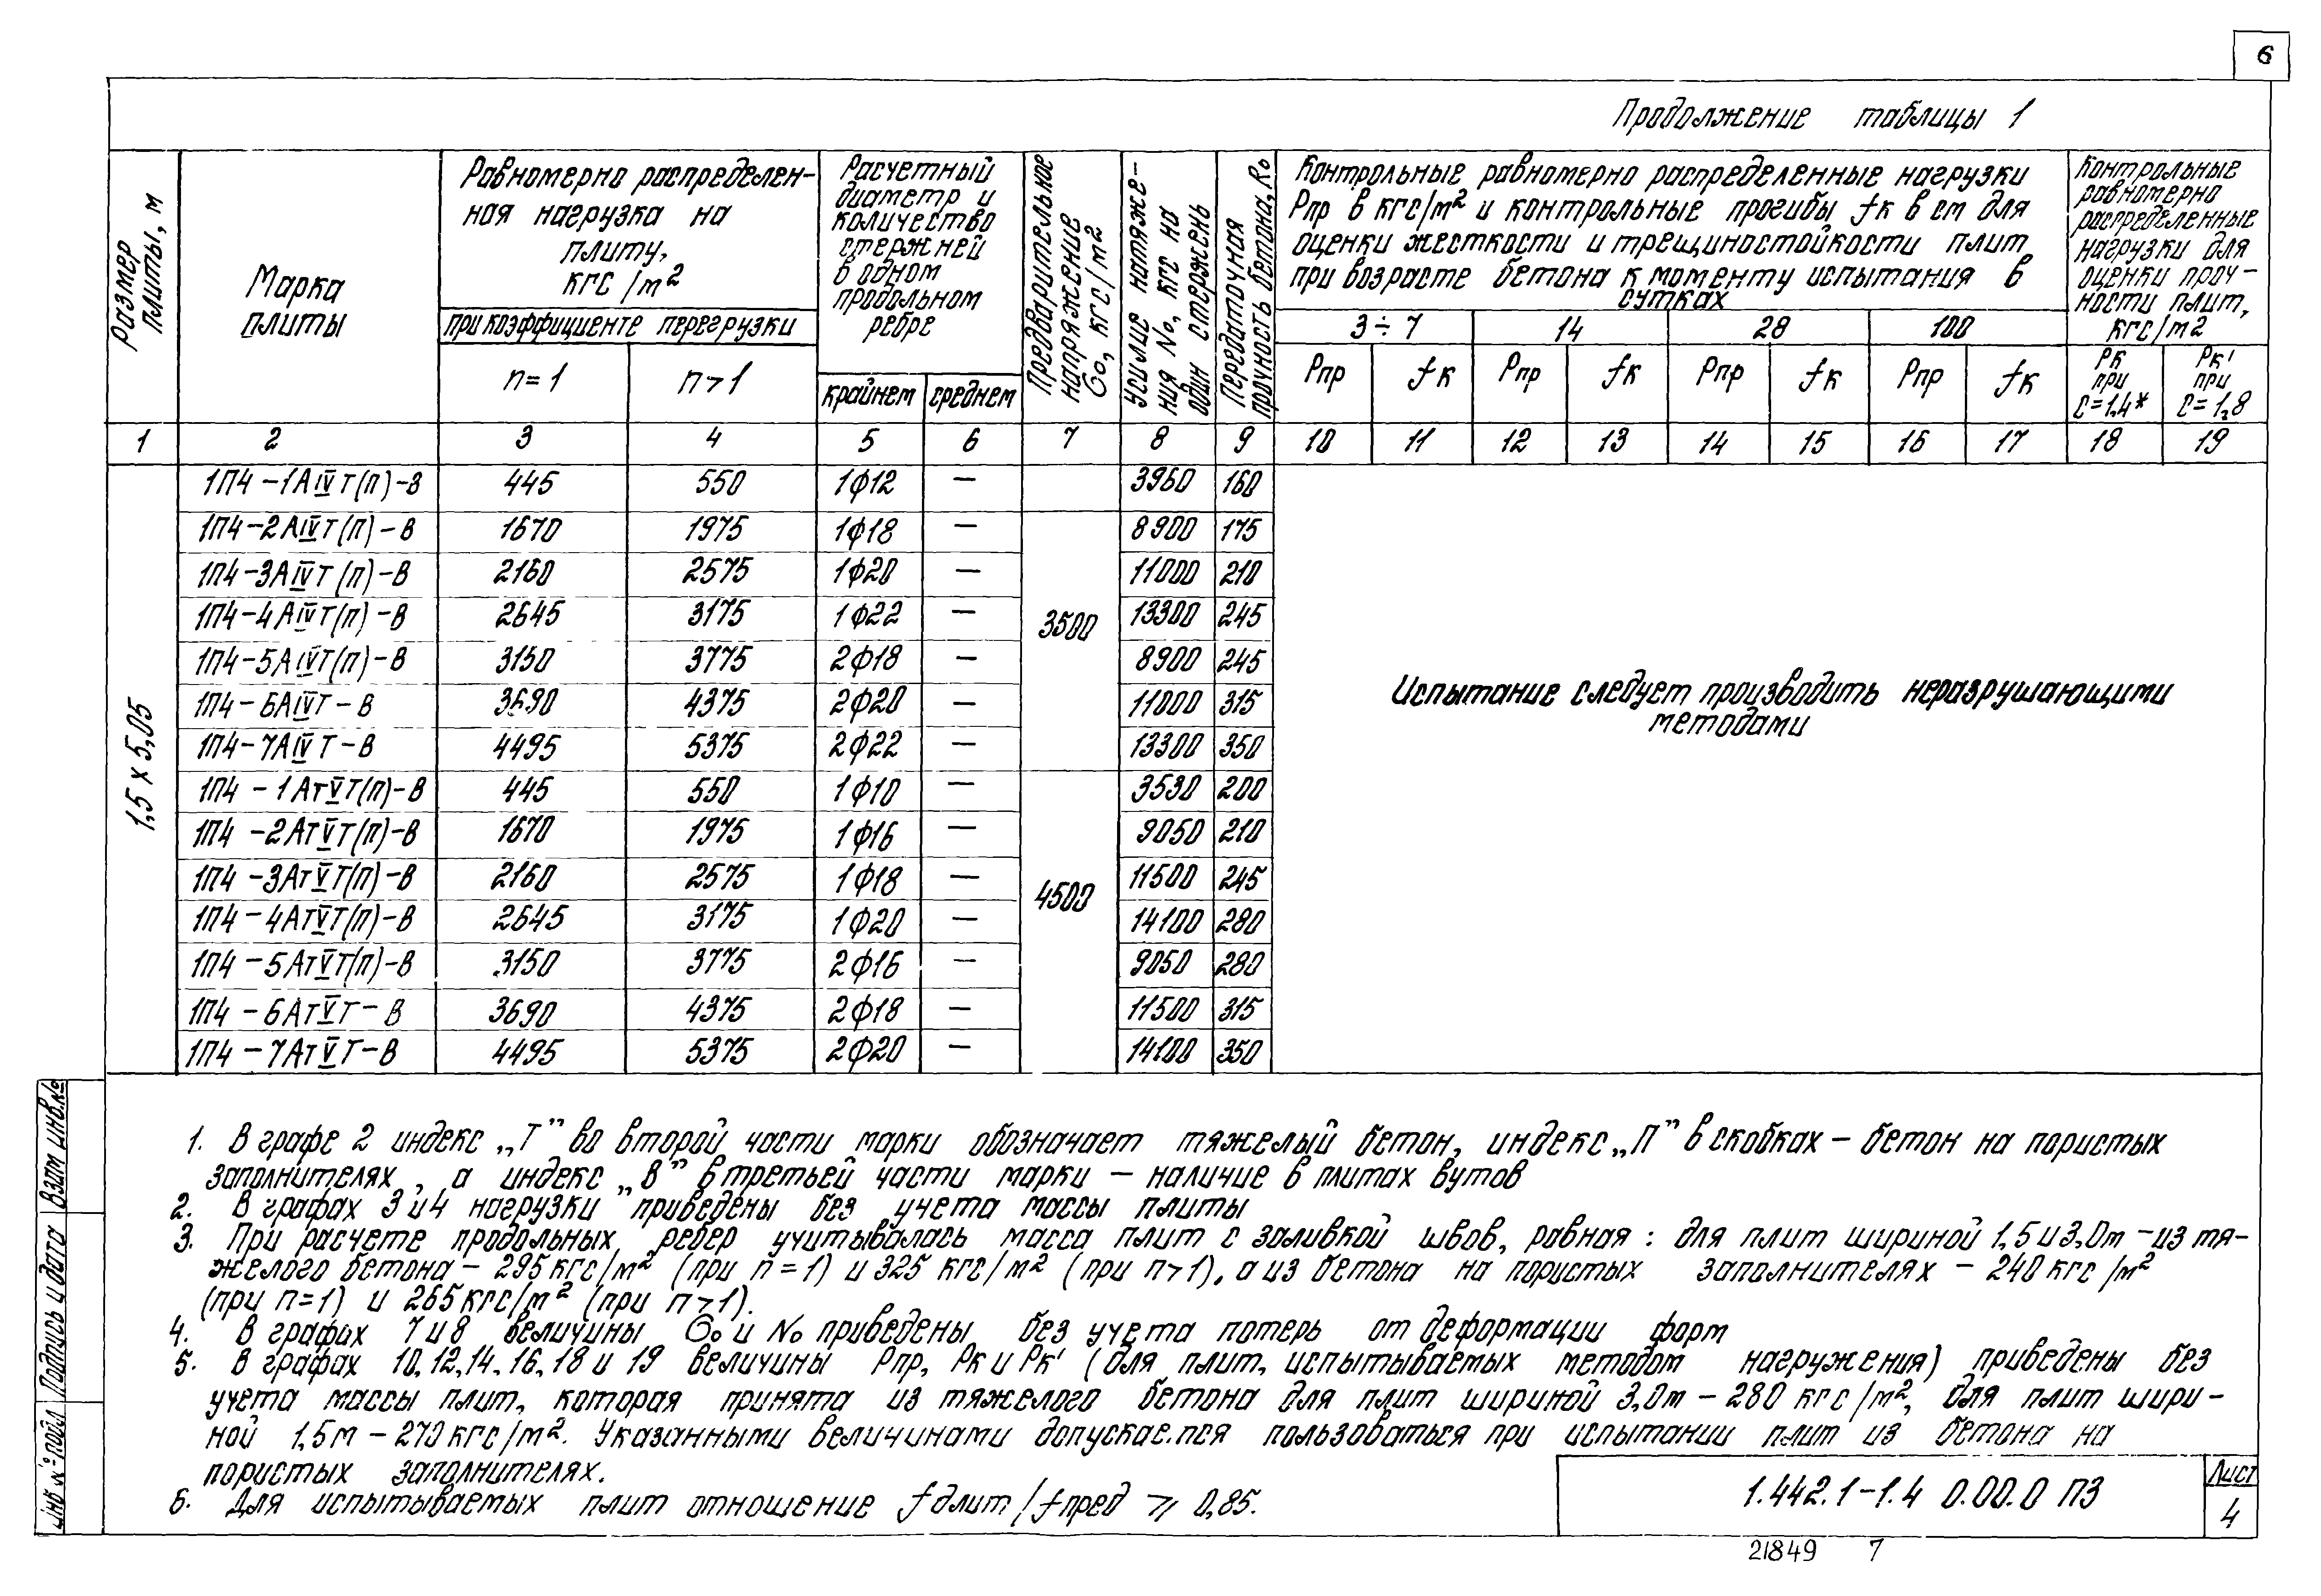 6
Продолжение таблицы 1
Размер плиты, м
Марка плиты
Равномерно распределен-
ная нагрузка на
плиту,
кгс/м²
при коэффициенте перегрузки
n=1 n>1
Расчетный
диаметр и
количество
стержней
в одном
продольном
ребре
крайнем среднем
Предварительное напряжение σо, кгс/м²
Усилие натяже-
ния Nо, кгс на
один стержень
Передаточная прочность бетона, Rо
Контрольные равномерно распределенные нагрузки
Рпр в кгс/м² и контрольные прогибы fк в см для
оценки жесткости и трещиностойкости плит
при возрасте бетона к моменту испытания в
сутках
3÷7 14 28 100
Рпр fк Рпр fк Рпр fк Рпр fк
Контрольные
равномерно
распределенные
нагрузки для
оценки проч-
ности плит,
кгс/м²
Рк при С=1,4* Рк' при С=1,8
1 2 3 4 5 6 7 8 9 10 11 12 13 14 15 16 17 18 19
1,5 x 5,05
1П4-1АIVТ(П)-В 445 550 1ф12 — 3960 160
1П4-2АIVТ(П)-В 1670 1975 1ф18 — 8900 175
1П4-3АIVТ(П)-В 2160 2575 1ф20 — 11000 210
1П4-4АIVТ(П)-В 2645 3175 1ф22 — 3500 13300 245
1П4-5АIVТ(П)-В 3150 3775 2ф18 — 8900 245
1П4-6АIVТ-В 3690 4375 2ф20 — 11000 315
1П4-7АIVТ-В 4495 5375 2ф22 — 13300 350
1П4-1АтVТ(П)-В 445 550 1ф10 — 3530 200
1П4-2АтVТ(П)-В 1670 1975 1ф16 — 9050 210
1П4-3АтVТ(П)-В 2160 2575 1ф18 — 4500 11500 245
1П4-4АтVТ(П)-В 2645 3175 1ф20 — 14100 280
1П4-5АтVТ(П)-В 3150 3775 2ф16 — 9050 280
1П4-6АтVТ-В 3690 4375 2ф18 — 11500 315
1П4-7АтVТ-В 4495 5375 2ф20 — 14100 350
Испытание следует производить неразрушающими
методами
1. В графе 2 индекс „Т” во второй части марки обозначает тяжелый бетон, индекс „П” в скобках – бетон на пористых
заполнителях, а индекс „В” в третьей части марки – наличие в плитах вутов
2. В графах 3 и 4 нагрузки приведены без учета массы плиты
3. При расчете продольных ребер учитывалась масса плит с заливкой швов, равная: для плит шириной 1,5 и 3,0м – из тя-
желого бетона – 295 кгс/м² (при n=1) и 325 кгс/м² (при n>1), а из бетона на пористых заполнителях – 240 кгс/м²
(при n=1) и 265 кгс/м² (при n>1).
4. В графах 7 и 8 величины σо и Nо приведены без учета потерь от деформации форм
5. В графах 10, 12, 14, 16, 18 и 19 величины Рпр, Рк и Рк' (для плит, испытываемых методом нагружения) приведены без
учета массы плит, которая принята из тяжелого бетона для плит шириной 3,0м – 280 кгс/м², для плит шири-
ной 1,5м – 270 кгс/м². Указанными величинами допускается пользоваться при испытании плит из бетона на
пористых заполнителях.
6. Для испытываемых плит отношение fдлит/fпред ⩾ 0,85.
Взам инв.№
Подпись и дата
Инв.№подл
1.442.1-1.4 0.00.0 ПЗ
Лист
4
21849 7